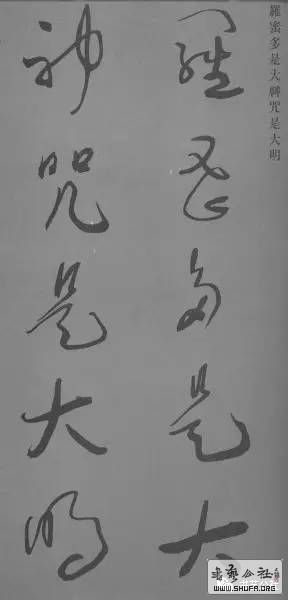 羅蜜多是大神咒是大明
羅蜜多是大
神咒是大明
書藝公社
WWW.SHUFA.ORG